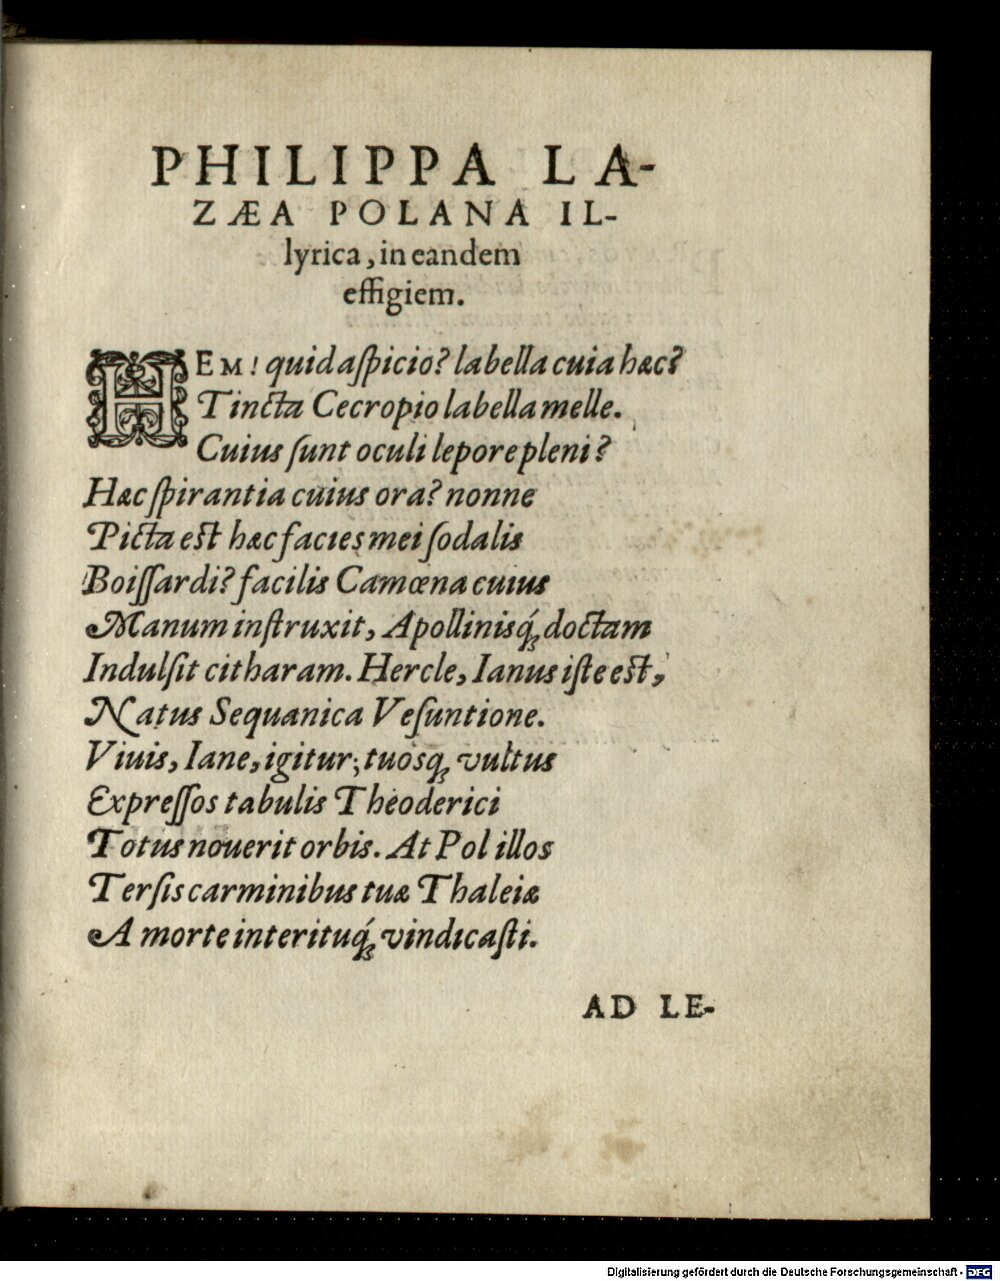 PHILIPPA LA-
ZÆA POLANA IL-
lyrica, in eandem
effigiem.
HEM! quid aſpicio? labella cuia hæc?
Tincta Cecropio labella melle.
Cuius ſunt oculi lepore pleni?
Hæc ſpirantia cuius ora? nonne
Picta eſt hæc facies mei ſodalis
Boiſſardi? facilis Camœna cuius
Manum inſtruxit, Apollinisq́; doctam
Indulſit citharam. Hercle, Ianus iſte eſt,
Natus Sequanica Veſuntione.
Viuis, Iane, igitur; tuosq; vultus
Expreſſos tabulis Theoderici
Totus nouerit orbis. At Pol illos
Terſis carminibus tuæ Thaleiæ
A morte interituq́; vindicaſti.
AD LE-
Digitalisierung gefördert durch die Deutsche Forschungsgemeinschaft - DFG